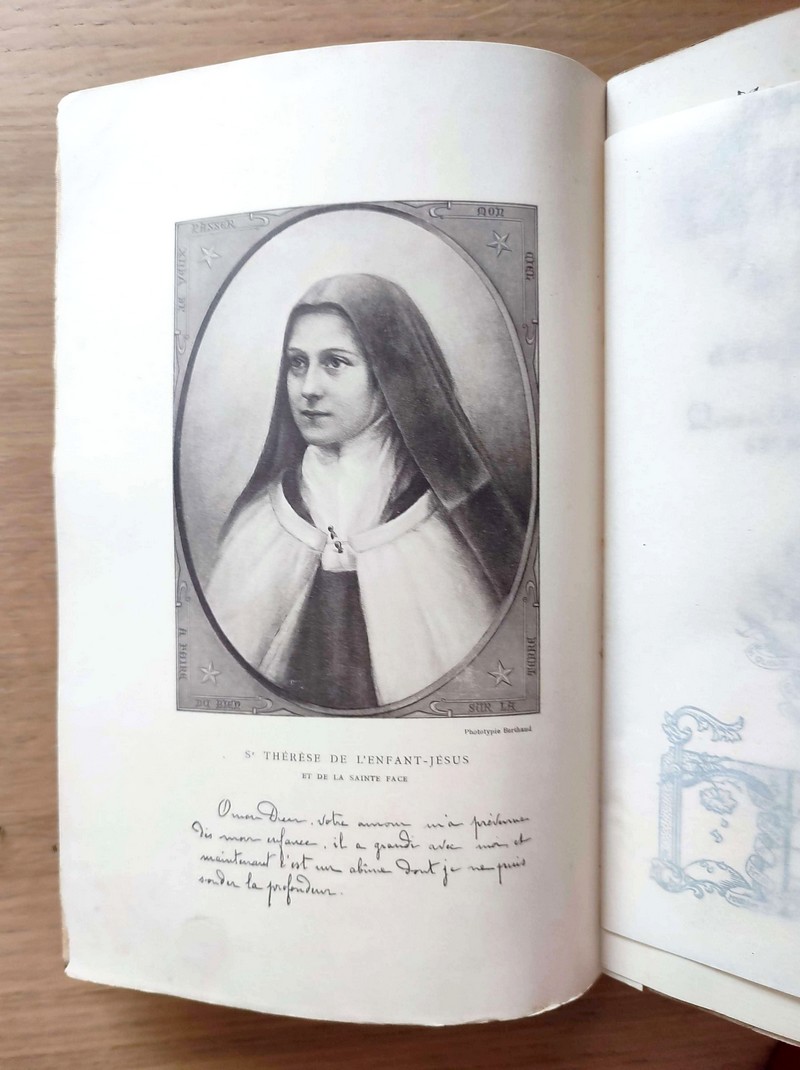 JE VEUX
PASSER
MON
CIEL
A FAIRE
DU BIEN
SUR LA
TERRE
Phototypie Berthaud
Sr THÉRÈSE DE L'ENFANT-JÉSUS
ET DE LA SAINTE FACE
O mon Dieu, votre amour m'a prévenue
dès mon enfance, il a grandi avec moi et
maintenant c'est un abîme dont je ne puis
sonder la profondeur.